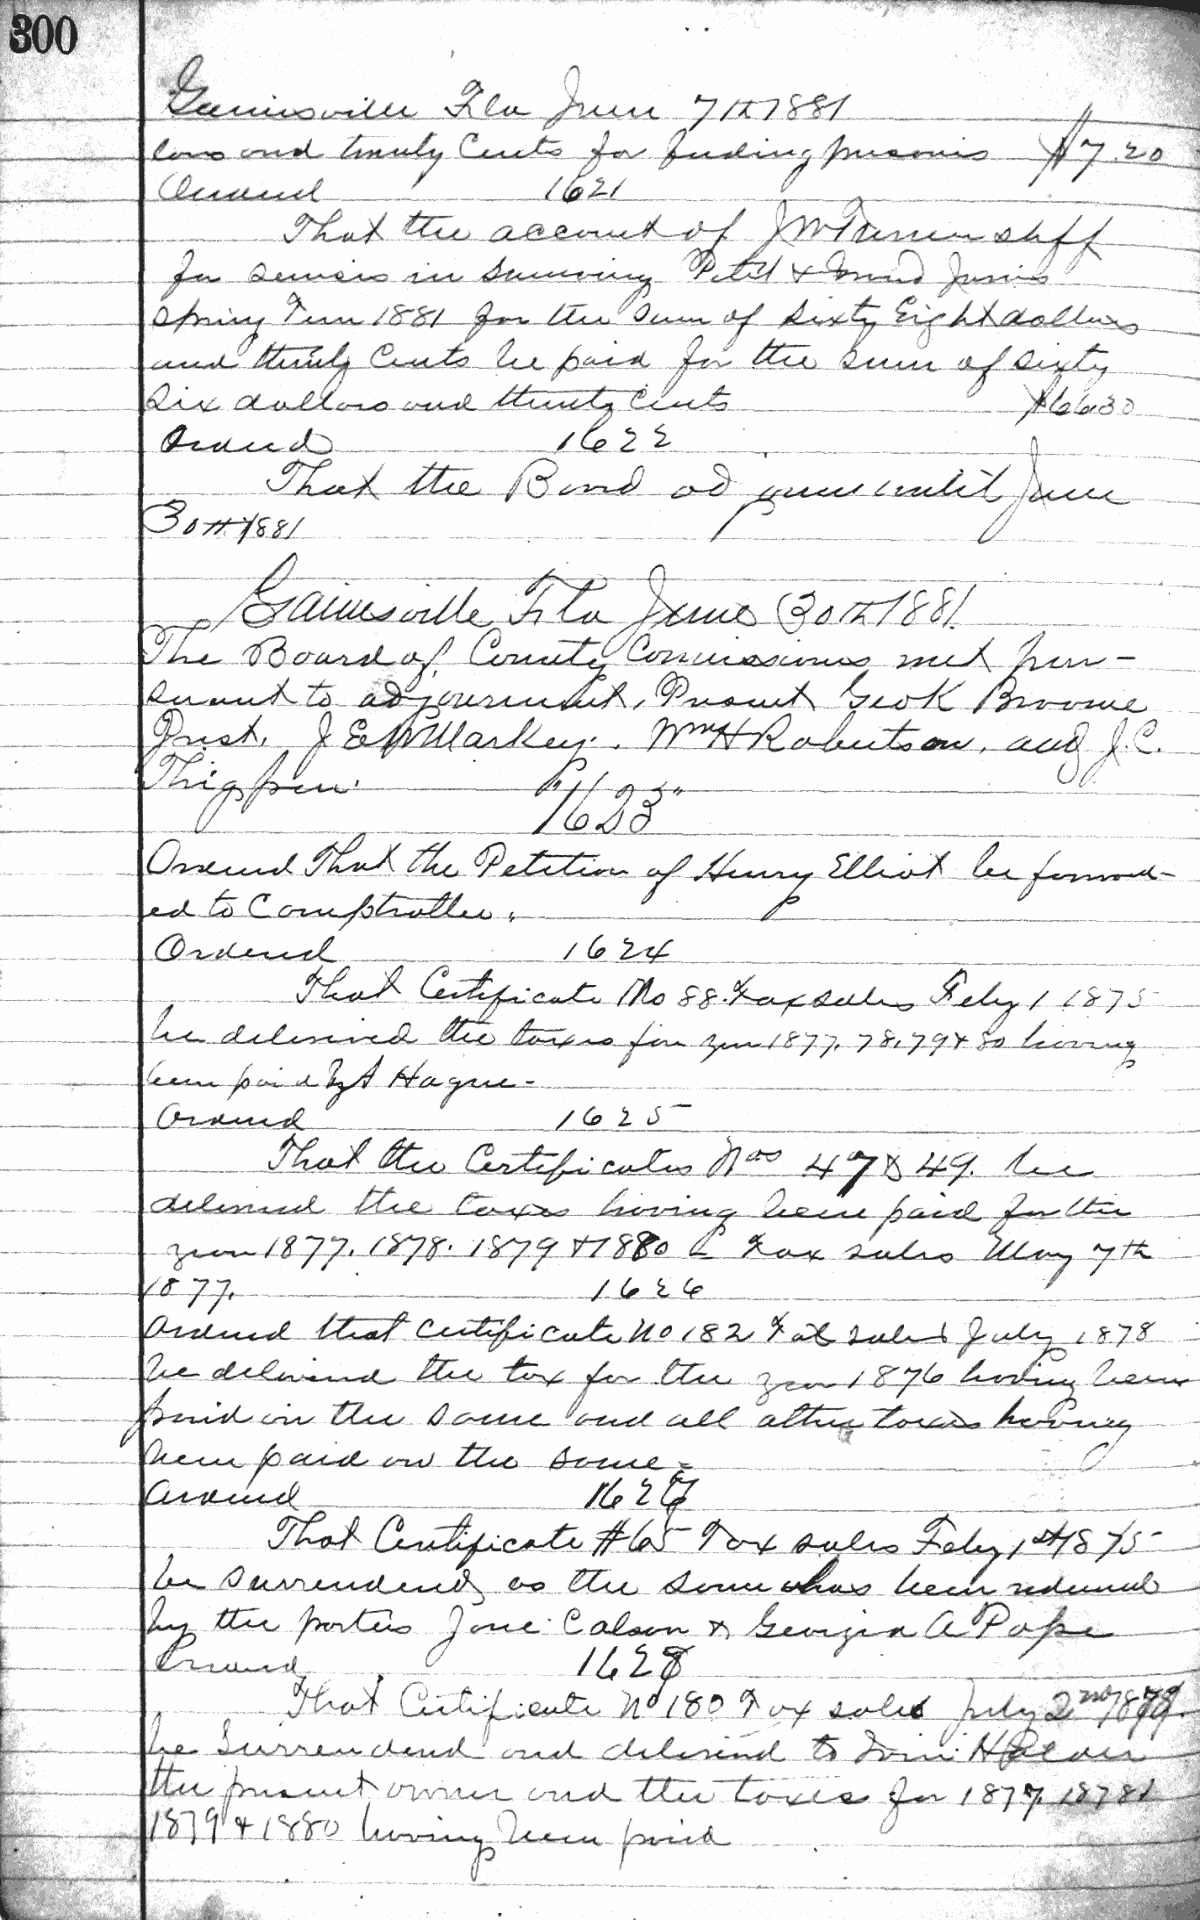 300
Gainesville Fla June 7th 1881
lars and twenty Cents for feeding prisoners $7.20
Ordered 1621
That the account of J W Turner shff
for services in summoning Petit & Grand Juries
Spring Term 1881 for the sum of Sixty Eight dollars
and thirty Cents be paid for the sum of sixty
Six dollars and thirty cents $66.30
Ordered 1622
That the Board adjourn until June
30th 1881
Gainesville Fla June 30th 1881
The Board of County Commissioners met pur-
suant to adjournment, Present Geo K Broome
Prest, J E W Markey, Wm H Robertson, and J.C.
Thigpen.
"1623"
Ordered That the Petition of Henry Elliot be forward-
ed to Comptroller.
Ordered 1624
That Certificate No 88 Tax sales Feby 1 1875
be delivered the taxes for year 1877, 78, 79 & 80 having
been paid by A Hague -
Ordered 1625
That the Certificates Nos 47 & 49. be
delivered the taxes having been paid for the
year 1877. 1878. 1879 & 1880 Tax sales May 7th
1877. 1626
Ordered that certificate No 182 Tax sales July 1878
be delivered the tax for the year 1876 having been
paid on the same and all other taxes having
been paid on the same -
Ordered 1627
That Certificate #65 Tax sales Feby 1st 1875
be surrendered as the same has been redeemed
by the parties Jane Calson & Georgia A Pope
Ordered 1628
That Certificate No 180 Tax sales July 2nd 1878.
be Surrendered and delivered to
the present owner and the taxes for 1877, 1878 &
1879 & 1880 having been paid